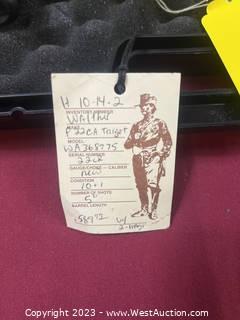 H 10-14-2
INVENTORY NUMBER
Walther
MAKE
P22CA Target
MODEL
WA368775
SERIAL NUMBER
22LR
GAUGE/CHOKE - CALIBER
new
CONDITION
10+1
NUMBER OF SHOTS
5"
BARREL LENGTH
w/
Copyright © 2023 - www.WestAuction.com